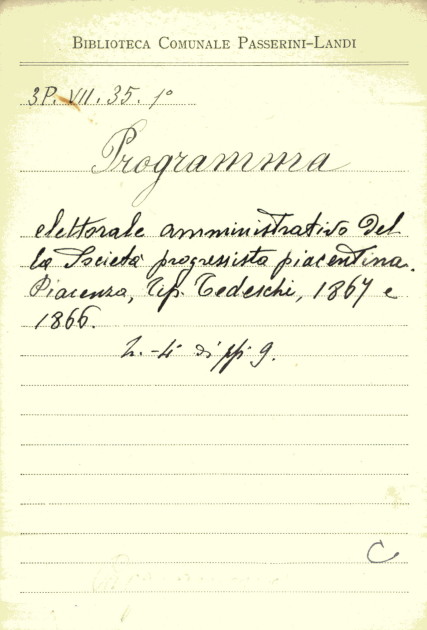 BIBLIOTECA COMUNALE PASSERINI-LANDI
3P. VII. 35. 1º
Programma
elettorale amministrativo del
la Società progressista piacentina.
Piacenza, Tip. Tedeschi, 1867 e
1866.
2. -4º di pp. 9.
C